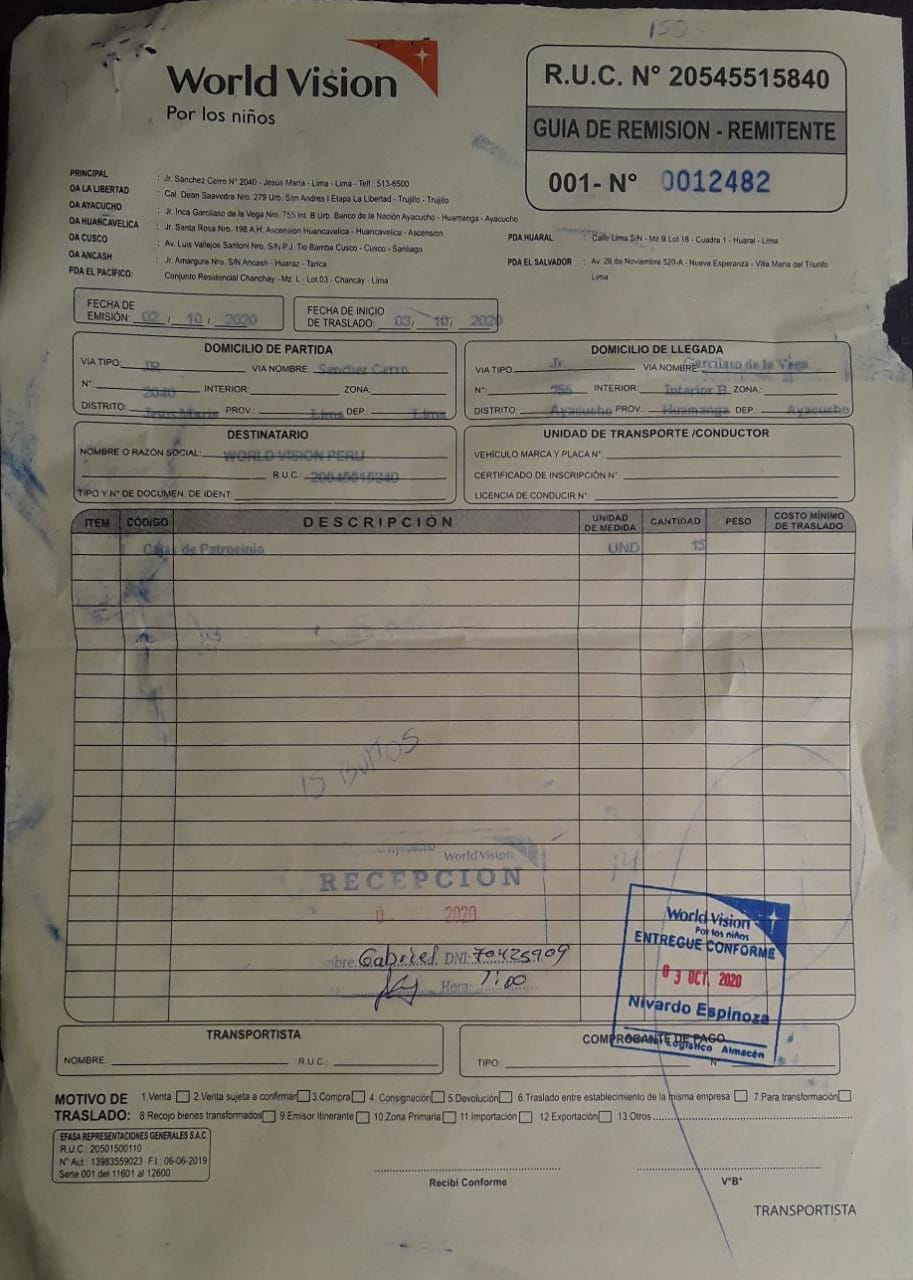 150
World Vision
Por los niños
R.U.C. N° 20545515840
GUIA DE REMISION - REMITENTE
001- N° 0012482
PRINCIPAL : Jr. Sánchez Cerro N° 2040 - Jesús María - Lima - Lima - Telf.: 513-6500
OA LA LIBERTAD : Cal. Dean Saavedra Nro. 279 Urb. San Andres I Etapa La Libertad - Trujillo - Trujillo
OA AYACUCHO : Jr. Inca Garcilaso de la Vega Nro. 755 Int. B Urb. Banco de la Nación Ayacucho - Huamanga - Ayacucho
OA HUANCAVELICA : Jr. Santa Rosa Nro. 198 A.H. Ascension Huancavelica - Huancavelica - Ascension
OA CUSCO : Av. Luis Vallejos Santoni Nro. S/N P.J. Tio Bamba Cusco - Cusco - Santiago
OA ANCASH : Jr. Amargura Nro. S/N Ancash - Huaraz - Tarica
PDA EL PACÍFICO: Conjunto Residencial Chanchay - Mz. L - Lot.03 - Chancay - Lima
PDA HUARAL : Calle Lima S/N - Mz B Lot 18 - Cuadra 1 - Huaral - Lima
PDA EL SALVADOR : Av. 26 de Noviembre 520-A - Nueva Esperanza - Villa Maria del Triunfo
Lima
FECHA DE
EMISIÓN: 02 / 10 / 2020
FECHA DE INICIO
DE TRASLADO: 03/ 10/ 2020
DOMICILIO DE PARTIDA
VIA TIPO: VIA NOMBRE: Sanchez Cerro
N°: 2040 INTERIOR: ZONA:
DISTRITO: Jesus Maria PROV.: Lima DEP.: Lima
DOMICILIO DE LLEGADA
VIA TIPO: Jr. VIA NOMBRE: Garcilaso de la Vega
N°: 755 INTERIOR: Interior B ZONA:
DISTRITO: Ayacucho PROV.: Huamanga DEP.: Ayacucho
DESTINATARIO
NOMBRE O RAZÓN SOCIAL: WORLD VISION PERU
R.U.C.: 20545515840
TIPO Y N° DE DOCUMEN. DE IDENT.
UNIDAD DE TRANSPORTE /CONDUCTOR
VEHÍCULO MARCA Y PLACA N°:
CERTIFICADO DE INSCRIPCIÓN N°:
LICENCIA DE CONDUCIR N°:
ITEM CÓDIGO DESCRIPCIÓN UNIDAD DE MEDIDA CANTIDAD PESO COSTO MÍNIMO DE TRASLADO
Cajas de Patrocinio UND 15
15 BULTOS
14
World Vision
RECEPCION
2020
Gabriel DNI: 70425909
Hora: 1:00
World Vision
Por los niños
ENTREGUE CONFORME
03 OCT. 2020
Nivardo Espinoza
Logístico Almacén
TRANSPORTISTA
NOMBRE: R.U.C.:
COMPROBANTE DE PAGO
TIPO: N°
MOTIVO DE TRASLADO: 1.Venta 2.Venta sujeta a confirmar 3.Compra 4. Consignación 5.Devolución 6.Traslado entre establecimiento de la misma empresa 7.Para transformación
8.Recojo bienes transformados 9.Emisor itinerante 10.Zona Primaria 11.Importación 12 Exportación 13 Otros
EFASA REPRESENTACIONES GENERALES S.A.C.
R.U.C.: 20501500110
N° Aut.: 13983559023 F.I.: 06-06-2019
Serie 001 del 11601 al 12600
Recibí Conforme
V°B°
TRANSPORTISTA